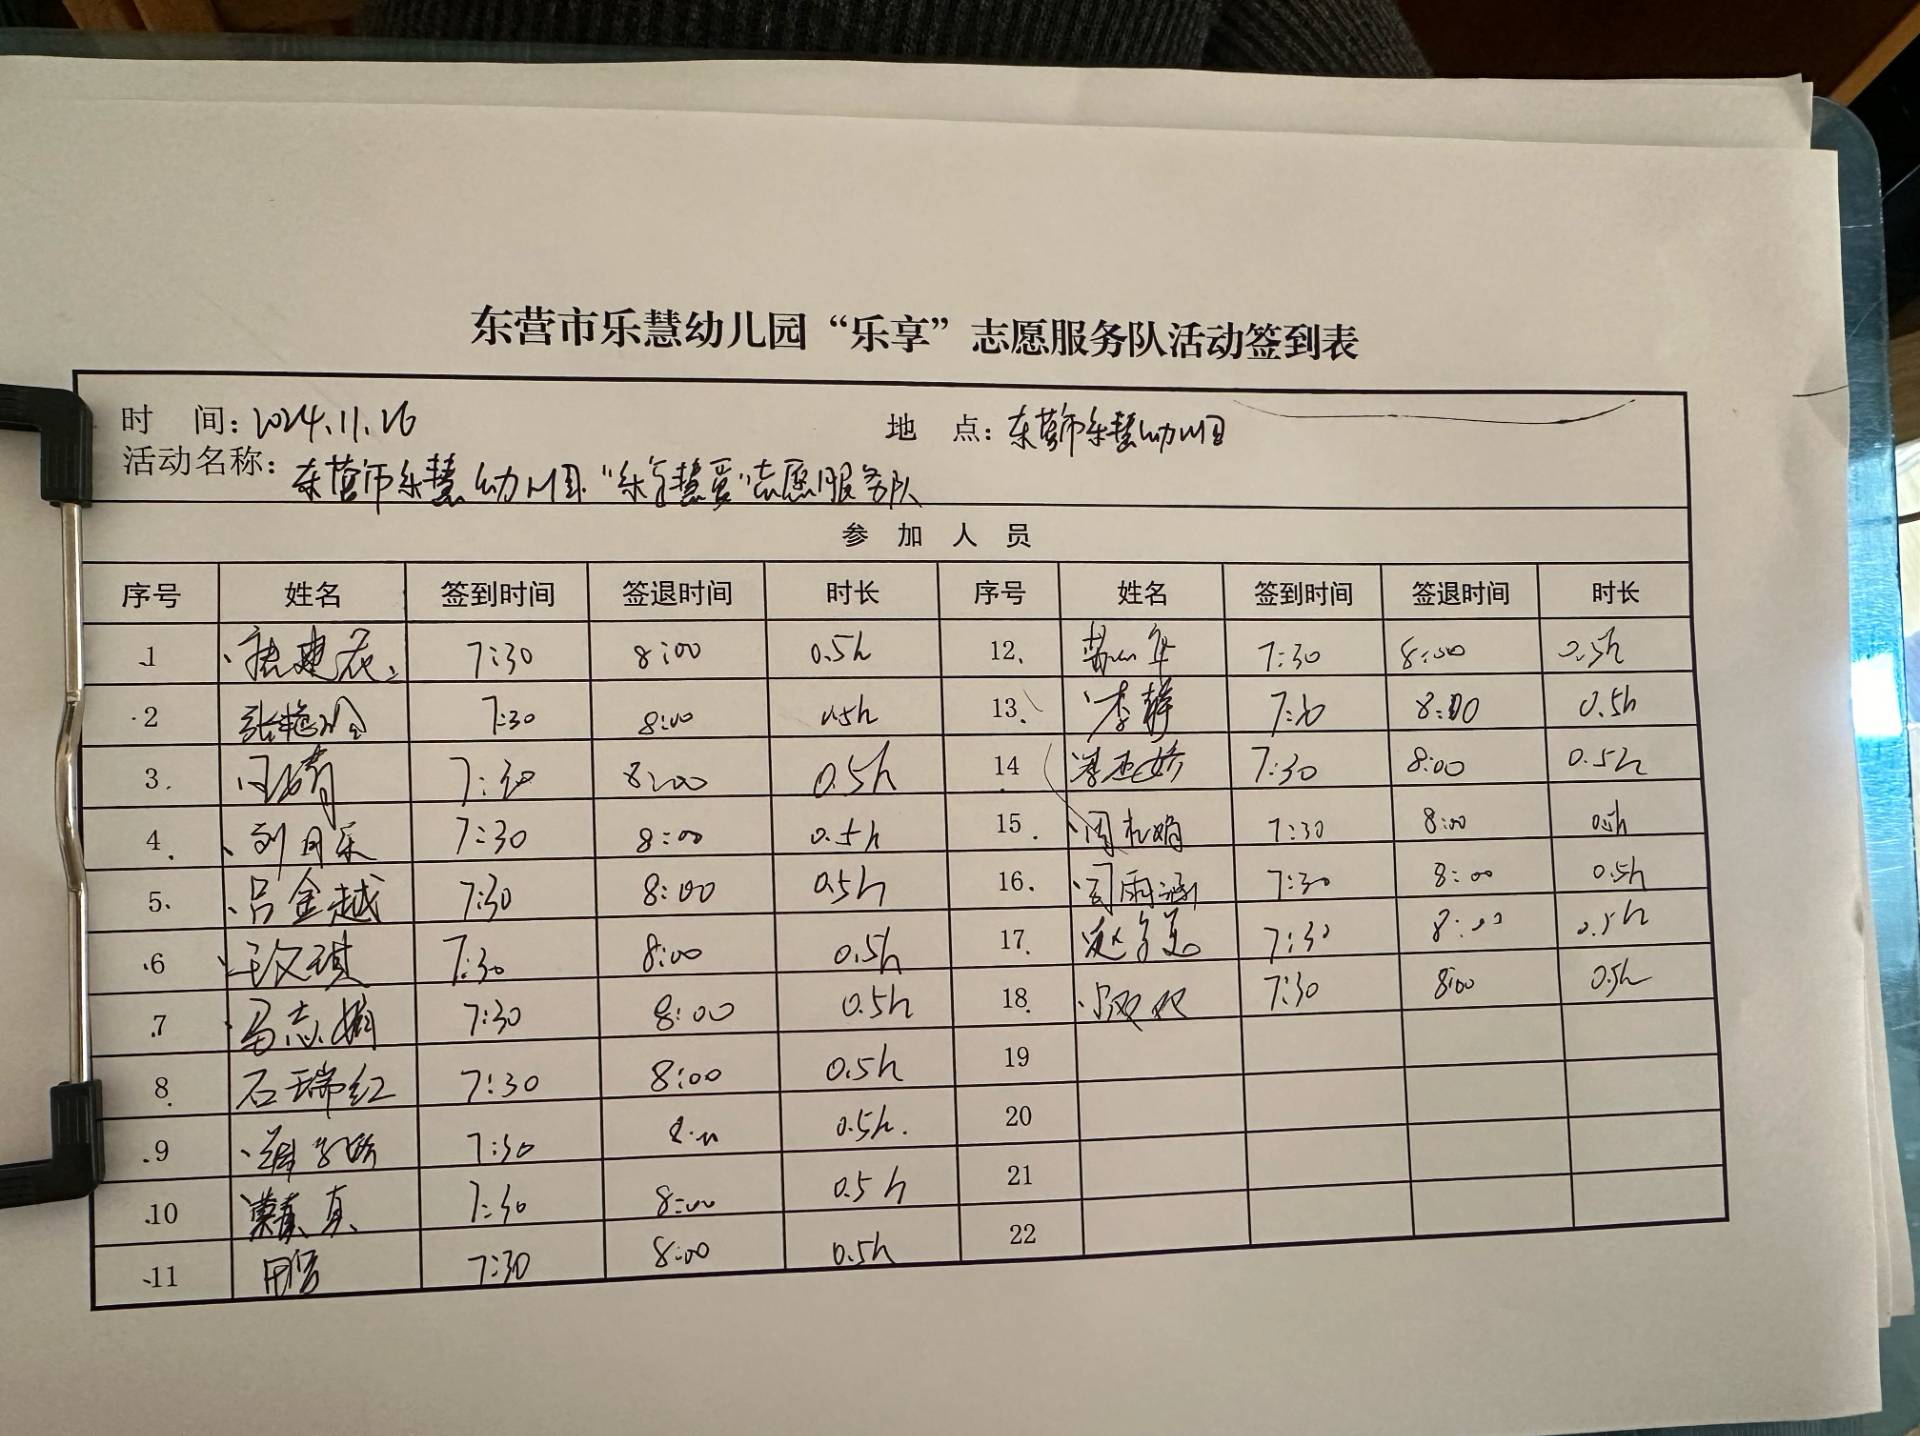 东营市乐慧幼儿园“乐享”志愿服务队活动签到表
时 间：2024.11.26 地 点：东营市乐慧幼儿园
活动名称：东营市乐慧幼儿园“乐享慧爱”志愿服务队
参 加 人 员
序号 姓名 签到时间 签退时间 时长 序号 姓名 签到时间 签退时间 时长
1 7:30 8:00 0.5h 12. 7:30 8:00 0.5h
2 张艳玲 7:30 8:00 0.5h 13. 李静 7:30 8:00 0.5h
3. 7:30 8:00 0.5h 14 7:30 8:00 0.5h
4. 刘月乐 7:30 8:00 0.5h 15. 7:30 8:00 0.5h
5. 吕金越 7:30 8:00 0.5h 16. 闫雨涵 7:30 8:00 0.5h
6 王汉琪 7:30 8:00 0.5h 17. 7:30 8:00 0.5h
7 马志娟 7:30 8:00 0.5h 18. 7:30 8:00 0.5h
8. 石瑞红 7:30 8:00 0.5h 19
9 7:30 0.5h. 20
10 真 7:30 8:00 0.5h 21
11 7:30 8:00 0.5h 22